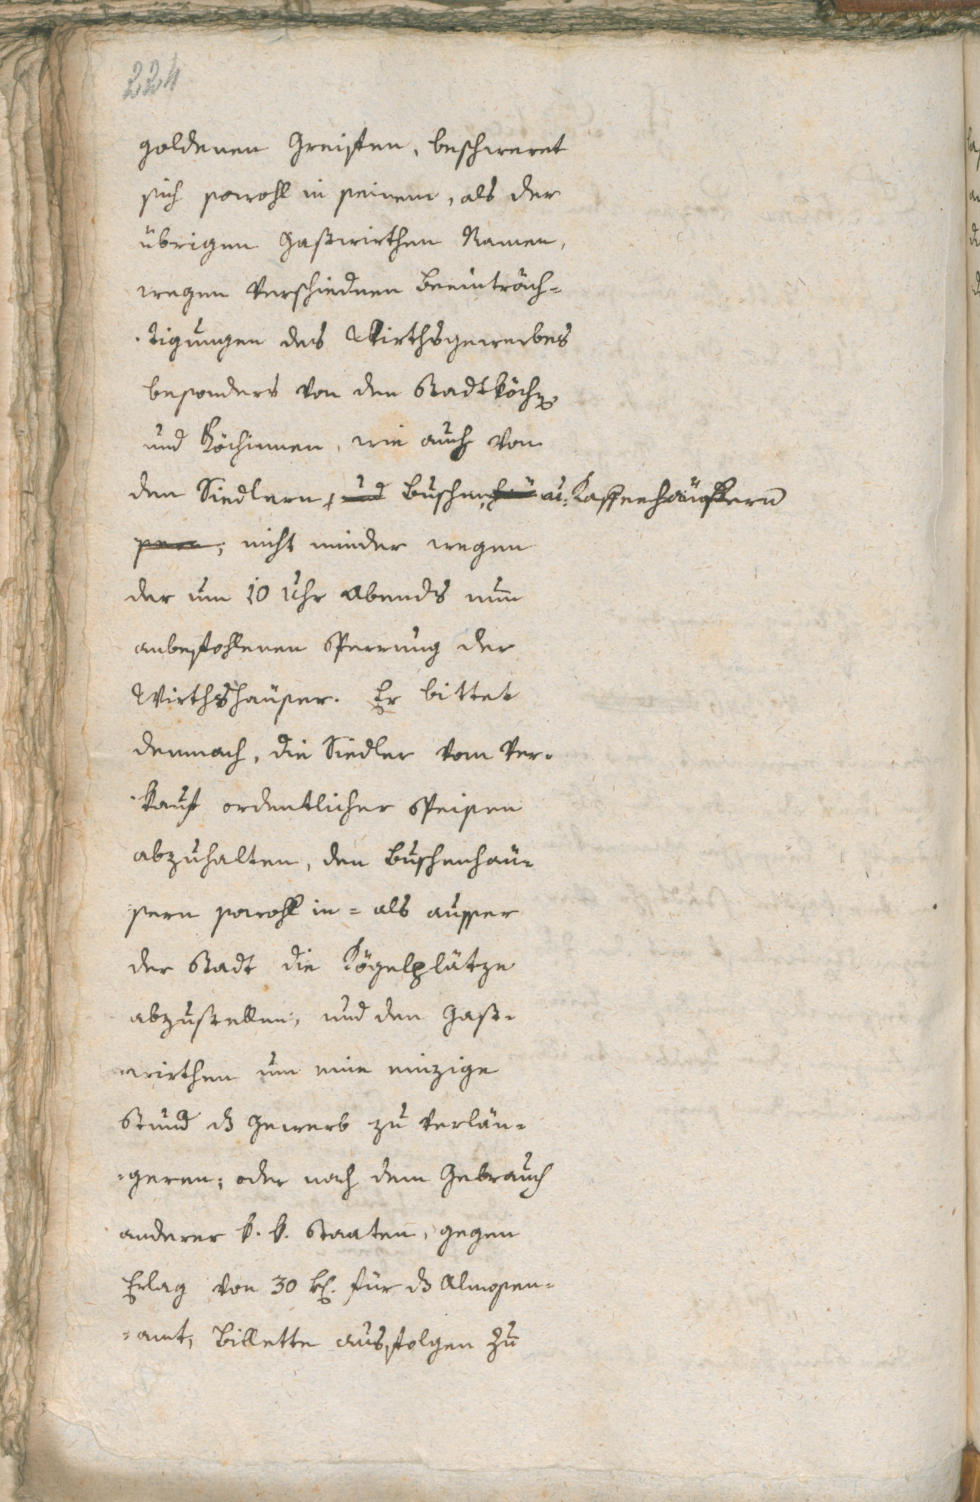 224
goldenen Greifen, beschweret
sich sowohl in seinem, als der
übrigen Gastwirthen Namen,
wegen verschiednen Beeinträch=
=tigungen des Wirthsgewerbes
besonders von den Stadtköchen
und Köchinnen, wie auch von
den Siedlern, und Buschen u. Kaffeehäusern
sern, nicht minder wegen
der um 10 Uhr Abends nun
anbefohlenen Sperrung der
Wirthshäuser. Er bittet
demnach, die Siedler vom Ver=
=kauf ordentlicher Speisen
abzuhalten, den Buschenhäu=
sern sowohl in= als ausser
der Stadt die Kögelplätze
abzustellen, und den Gast=
=wirthen um eine einzige
Stund ds Gewerb zu verlän=
=geren; oder nach dem Gebrauch
anderer k. k. Staaten, gegen
Erlag von 30 kr. für ds Almosen=
=amt, Billette ausfolgen zu